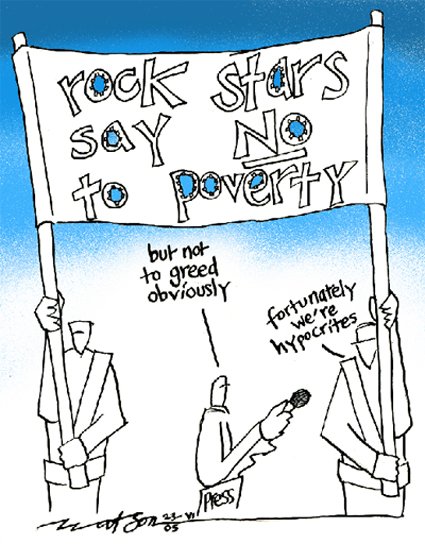 rock stars
say NO
to poverty
but not
to greed
obviously
fortunately
we're
hypocrites
Press
23
VI
05